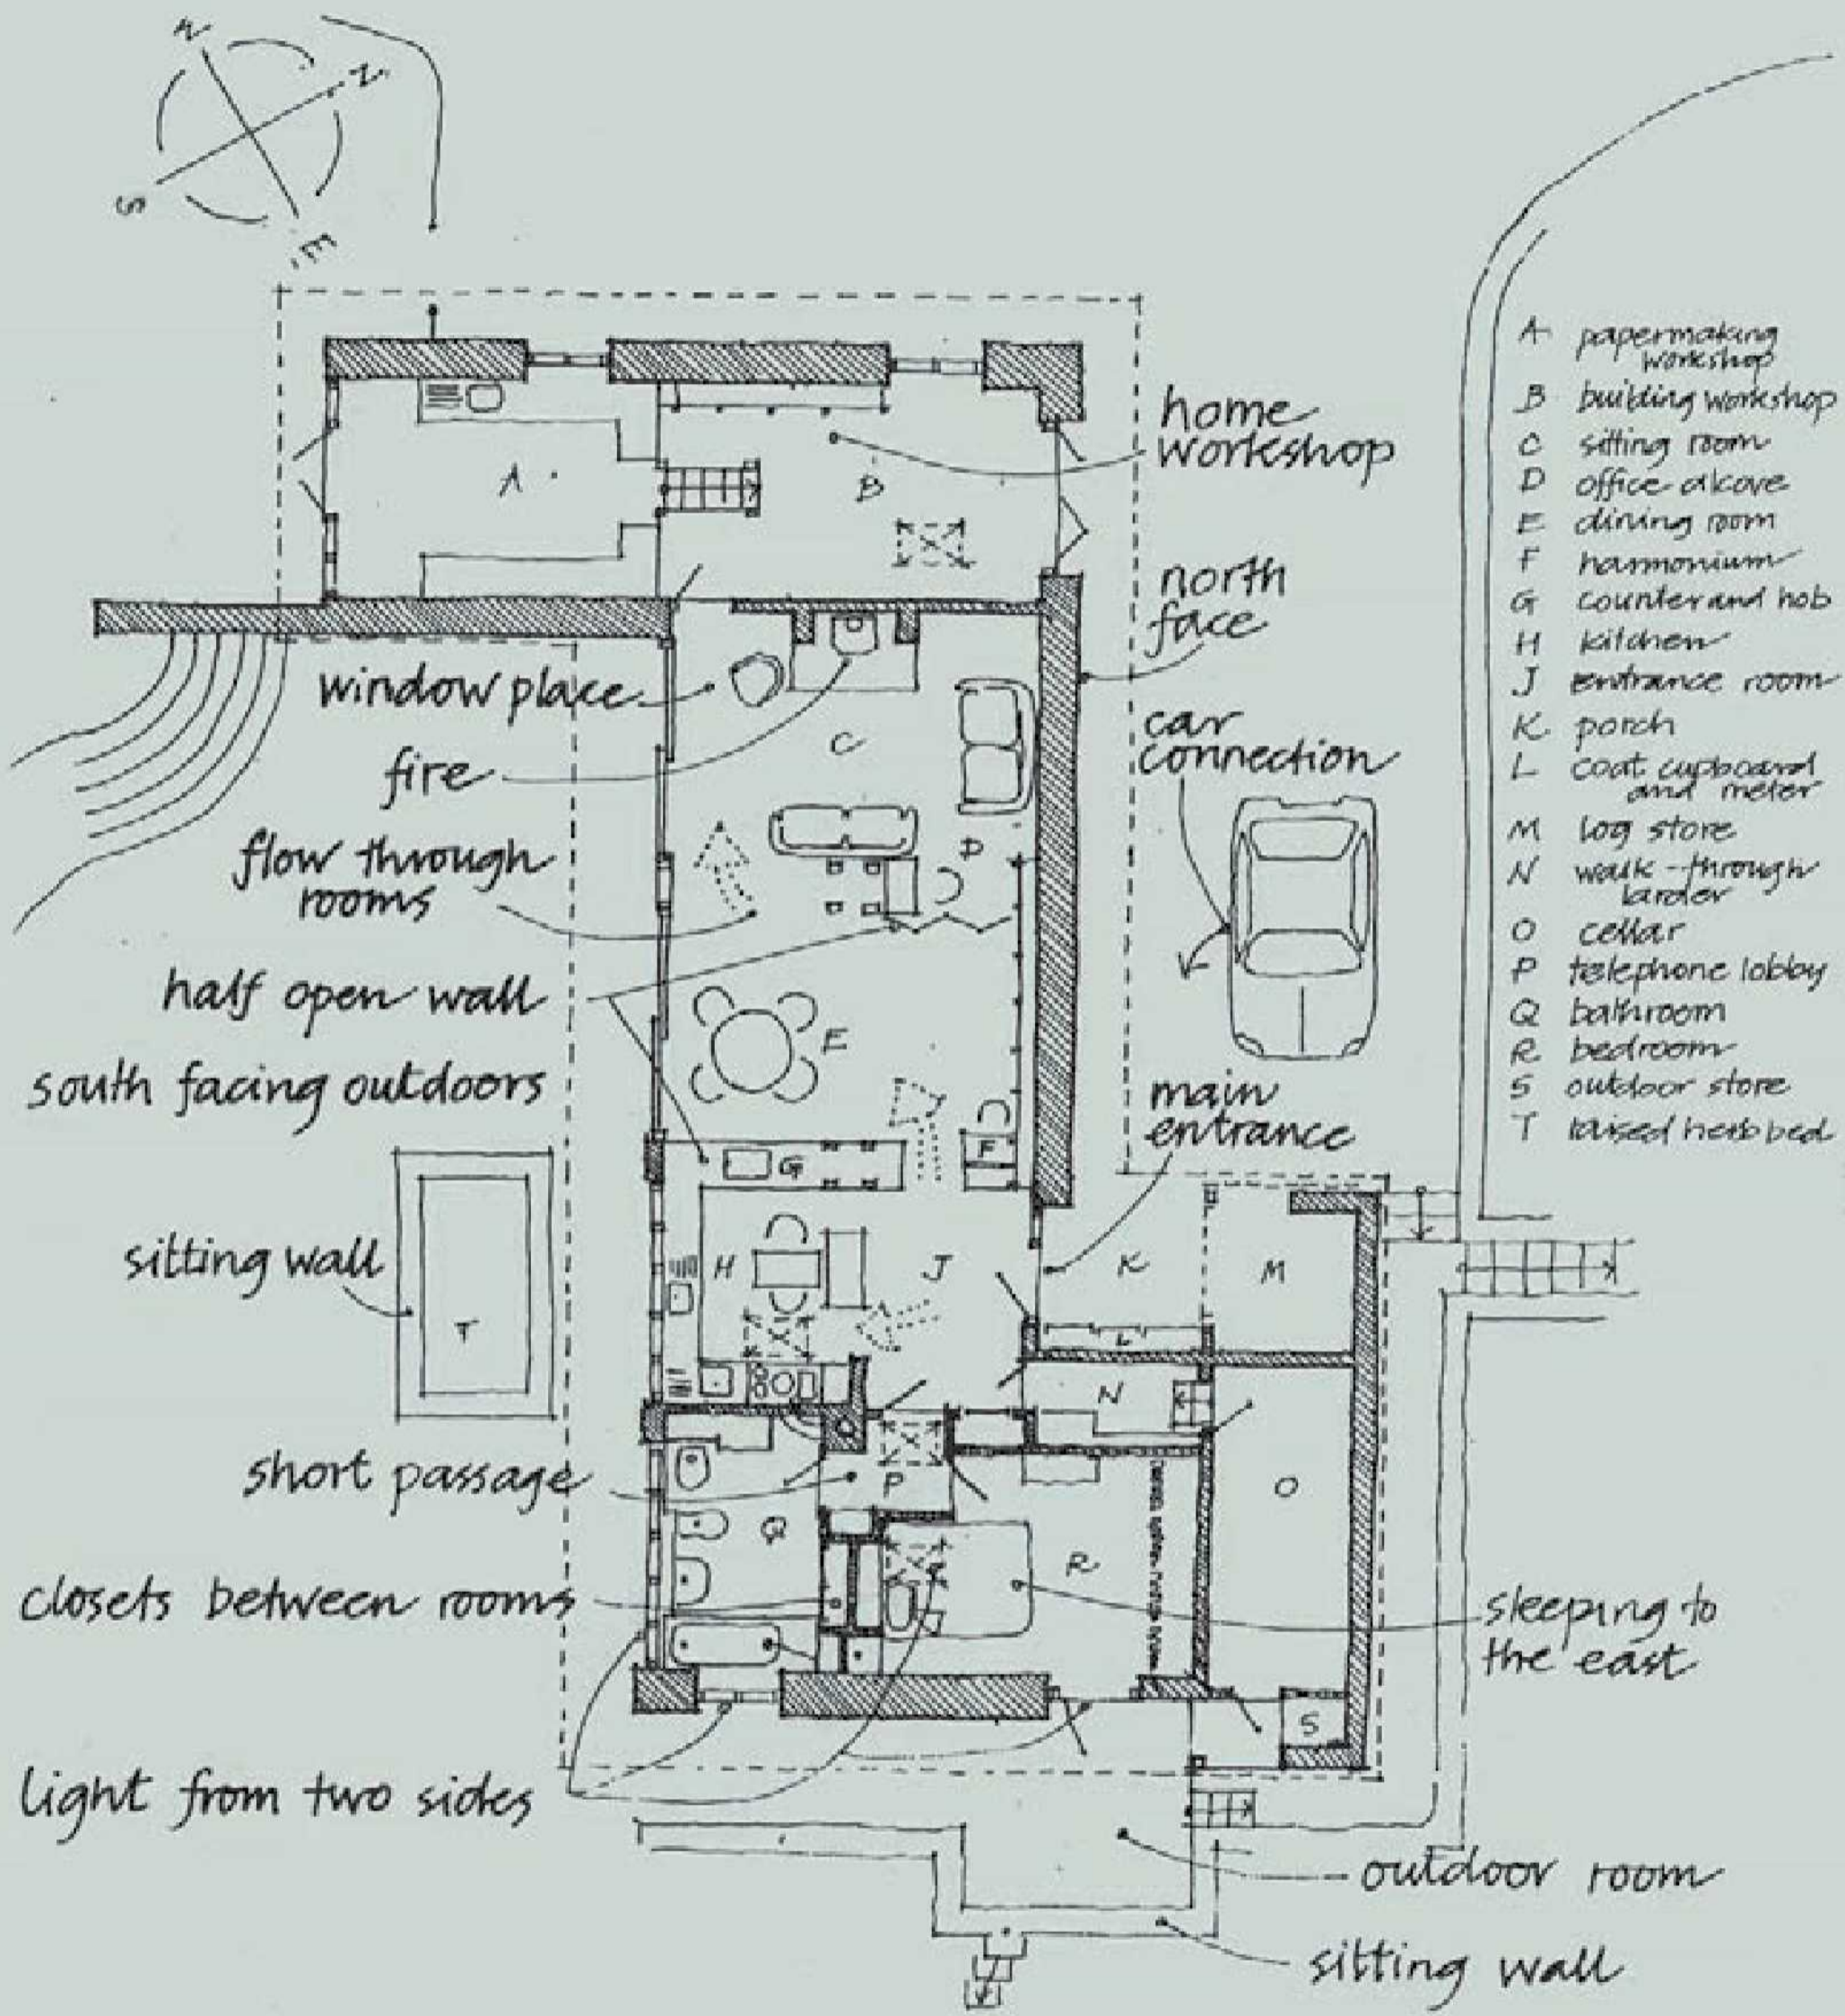 W
N
S
E
A
B
home
workshop
north
face
window place
fire
C
car
connection
flow through
rooms
D
half open wall
E
south facing outdoors
main
entrance
G
F
sitting wall
H
J
K
M
T
L
N
short passage
P
O
Q
R
closets between rooms
sleeping to
the east
S
light from two sides
outdoor room
sitting wall
A papermaking
workshop
B building workshop
C sitting room
D office alcove
E dining room
F harmonium
G counter and hob
H kitchen
J entrance room
K porch
L coat cupboard
and meter
M log store
N walk-through
larder
O cellar
P telephone lobby
Q bathroom
R bedroom
S outdoor store
T raised herb bed